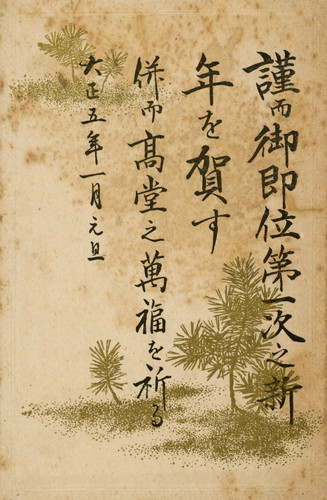 謹而御即位第一次之新
年を賀す
併而高堂之萬福を祈る
大正五年一月元旦